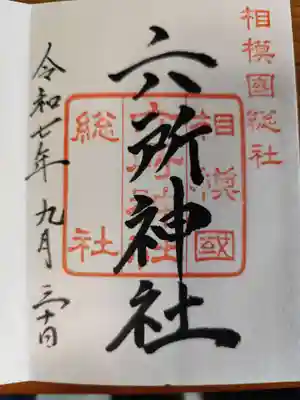 相模國総社
六所神社
相模國
総社
令和七年 九月 三十日